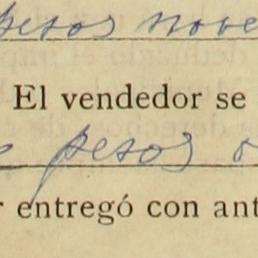 pesos nove
El vendedor se
e pesos o
r entregó con ant